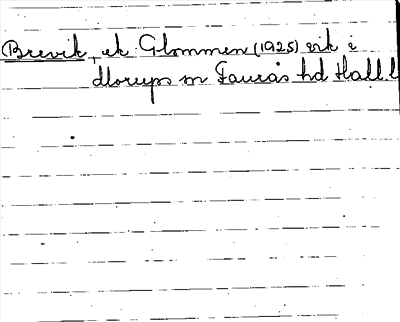 Brevik, ek Glommen (1925) vik i
Morups sn Faurås hd Hall. l